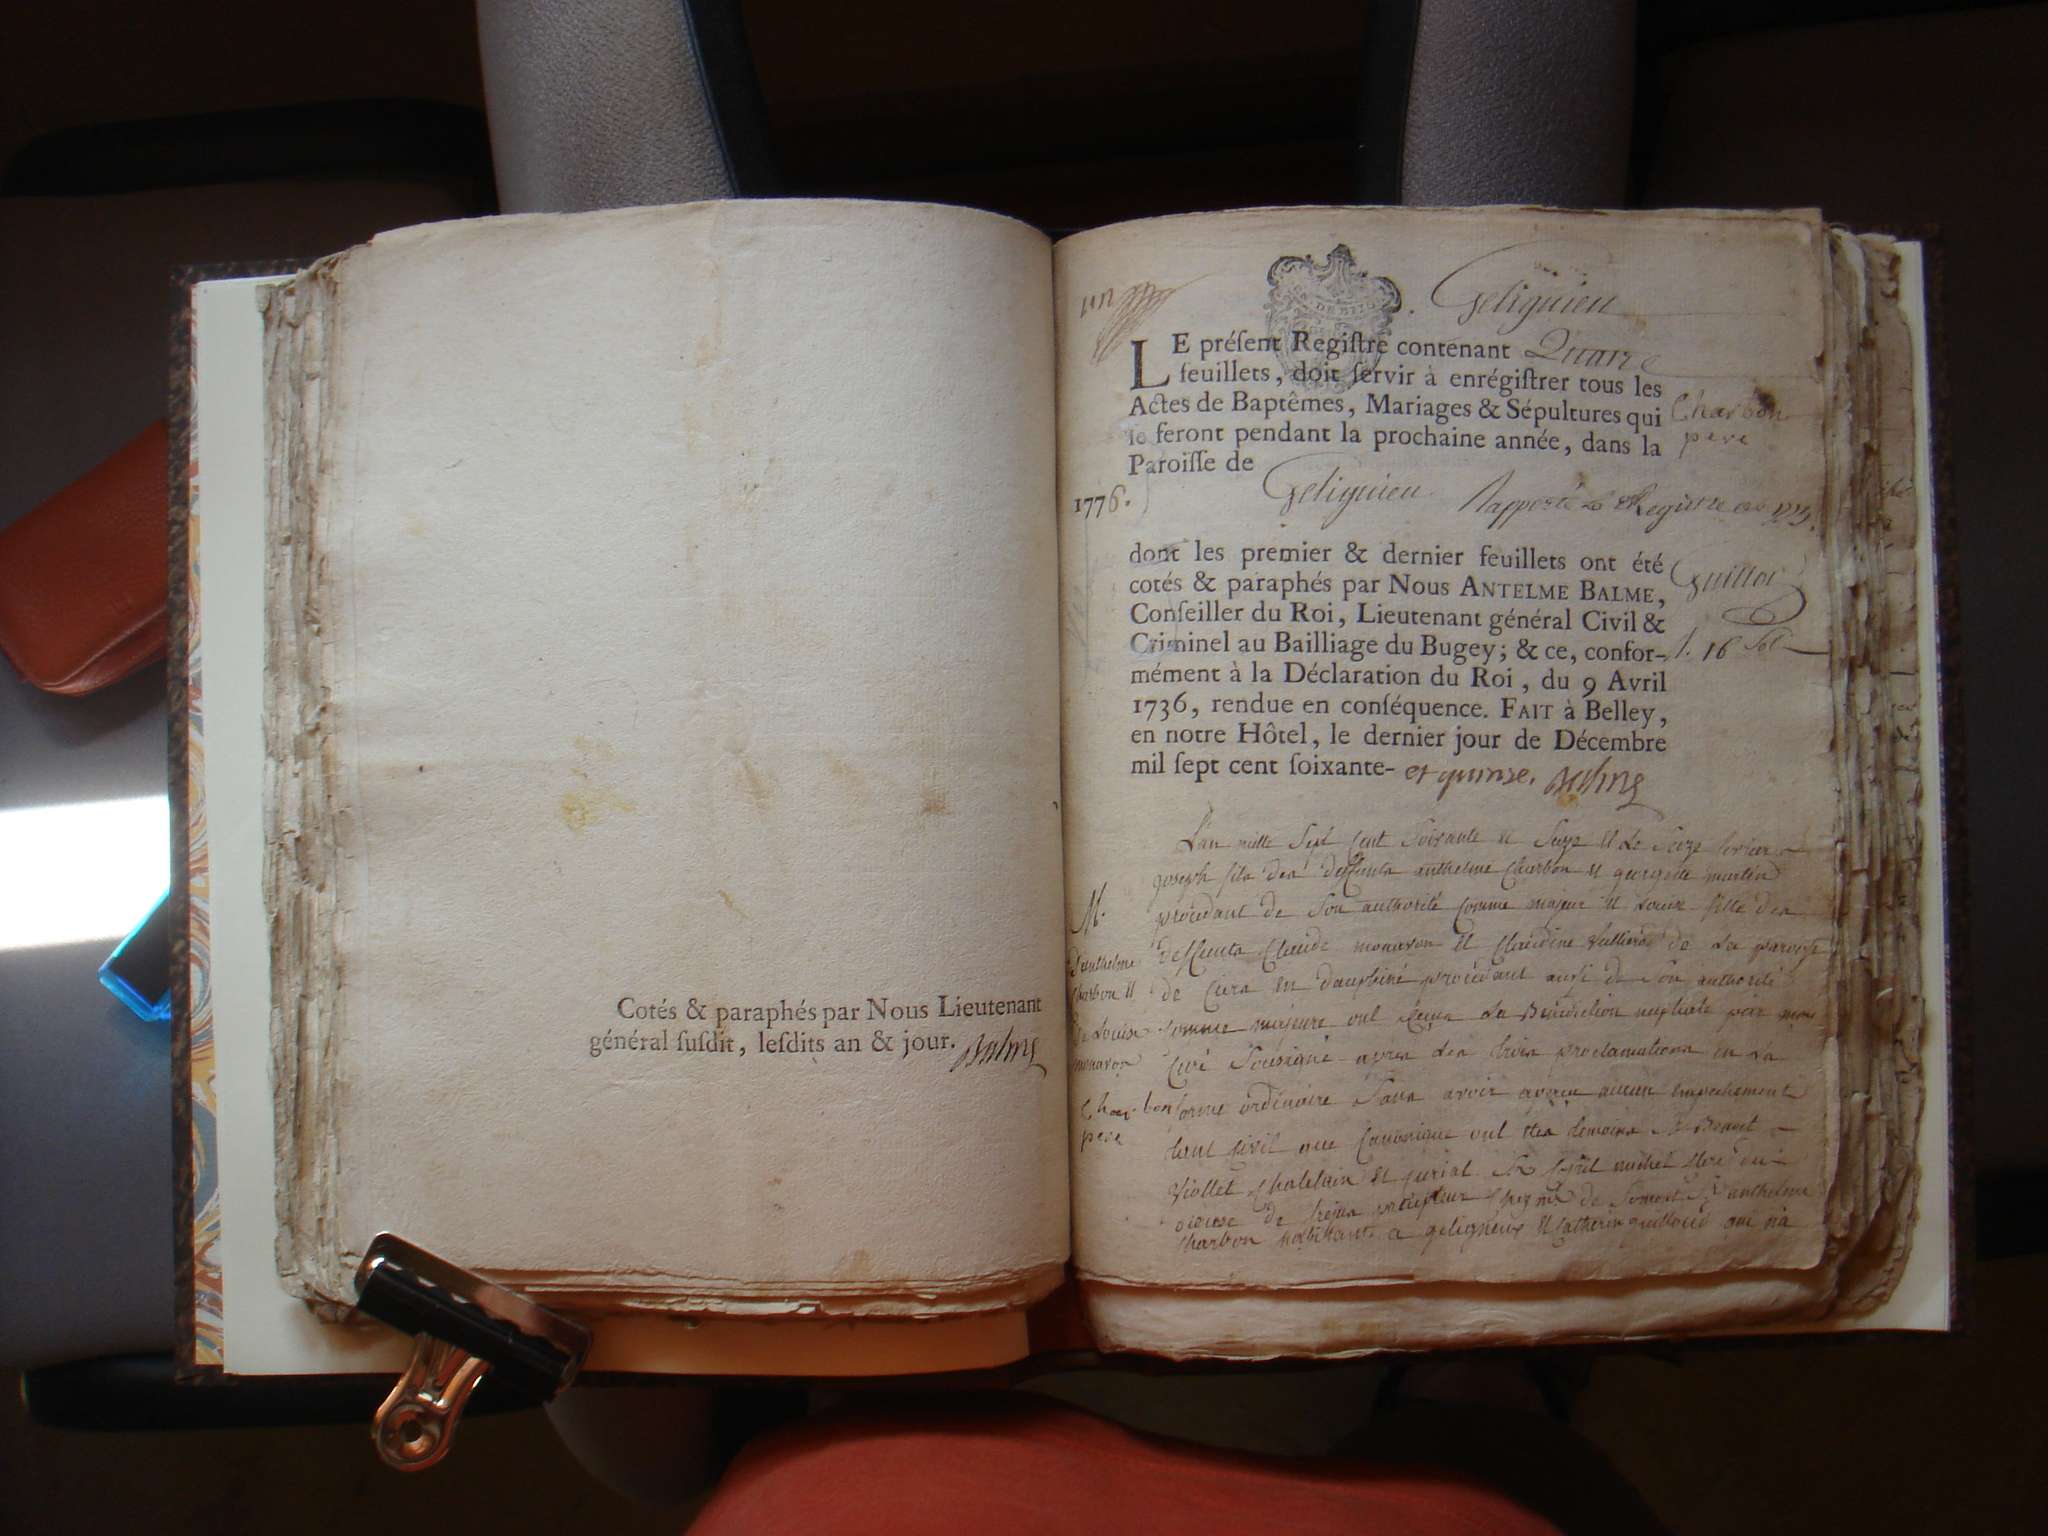 Cotés & paraphés par Nous Lieutenant
général ſuſdit, leſdits an & jour. Balme
Geliguieu
LE préſent Regiſtre contenant Quatre
feuillets, doit ſervir à enrégiſtrer tous les
Actes de Baptêmes, Mariages & Sépultures qui
ſe feront pendant la prochaine année, dans la
Paroiſſe de
Charbon
pere
1776.
Geliguieu Rapporté le Regiſtre
dont les premier & dernier feuillets ont été
cotés & paraphés par Nous ANTELME BALME,
Conſeiller du Roi, Lieutenant général Civil &
Criminel au Bailliage du Bugey; & ce, confor-
mément à la Déclaration du Roi, du 9 Avril
1736, rendue en conſéquence. FAIT à Belley,
en notre Hôtel, le dernier jour de Décembre
mil ſept cent ſoixante- et quinze. Balme
16
L'an mille Sept Cent Soixante et Seize et Le Seize
joseph fils des deffunts anthelme Charbon et martin
procedant de Son authorité Comme majeur et Louise fille des
deffunts Claude monavon et Claudine de La paroisse
de en dauphiné procedant aussi de Son authorité
Comme majeure ont Reçus La Bénédiction nuptiale par moy
Curé Sousigné apres Les trois proclamations en La
forme ordinaire Sans avoir aucun Empechement
tant Civil que Canonique ont Eté temoins Benoit
Viollet Chatelain et michel
de de anthelme
Charbon habittant a geligneux et Catherin qui n'a
M.
D'anthelme
Charbon et
De Louise
monavon
Charbon
pere